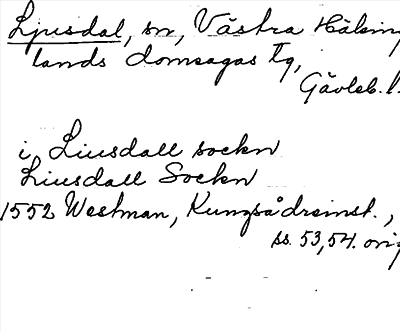 Ljusdal, sn, Västra Hälsing
lands domsagas tg,
Gävleb. l.
i Liusdall sockn
Liusdall Sockn
1552 Westman, Kungsådreinst.,
ss. 53, 54. orig